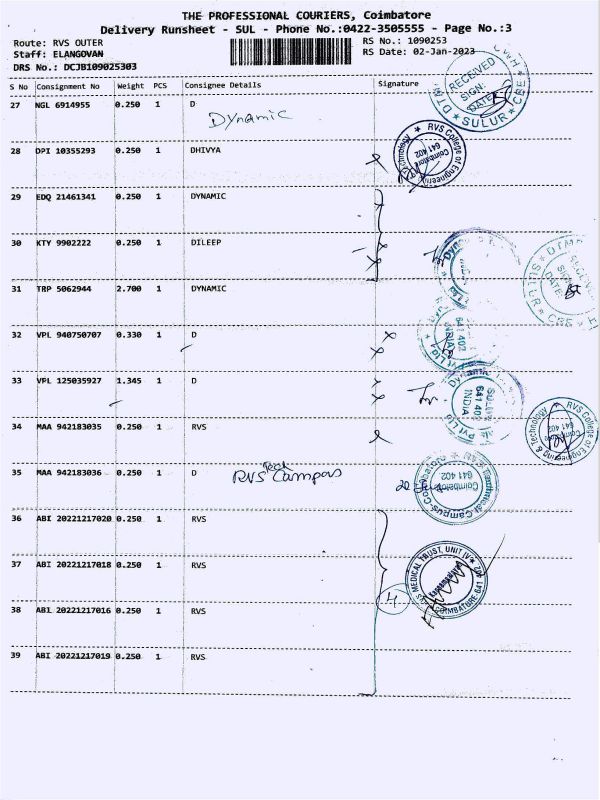 THE PROFESSIONAL COURIERS, Coimbatore
Delivery Runsheet - SUL - Phone No.:0422-3505555 - Page No.:3
Route: RVS OUTER
RS No.: 1090253
Staff: ELANGOVAN
RS Date: 02-Jan-2023
DRS No.: DCJB109025303
S No Consignment No Weight PCS Consignee Details Signature
27 NGL 6914955 0.250 1 D
Dynamic
RECEIVED
SIGN:
DATE:
SULUR
28 DPI 10355293 0.250 1 DHIVYA
RVS College of Engineering
Coimbatore
641 402
29 EDQ 21461341 0.250 1 DYNAMIC
30 KTY 9902222 0.250 1 DILEEP
31 TRP 5062944 2.700 1 DYNAMIC
32 VPL 940750707 0.330 1 D
641 402
INDIA
33 VPL 125035927 1.345 1 D
Dynamic
SULUR
641 402
INDIA
Pvt Ltd
34 MAA 942183035 0.250 1 RVS
RVS College of Engineering & Technology
Coimbatore
641 402
35 MAA 942183036 0.250 1 D
RVS Tech Campus
Coimbatore
641 402
36 ABI 20221217020 0.250 1 RVS
37 ABI 20221217018 0.250 1 RVS
MEDICAL TRUST, UNIT IV
COIMBATORE 641 402
4
38 ABI 20221217016 0.250 1 RVS
39 ABI 20221217019 0.250 1 RVS